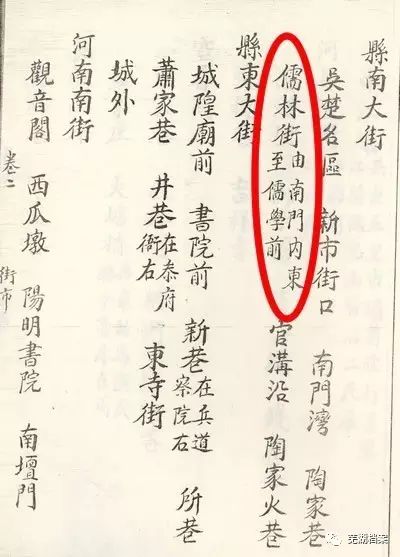 縣南大街
吳楚名區 新市街口 南門灣 陶家巷
儒林街由南門內東至儒學前 官溝沿 陶家火巷
縣東大街
城隍廟前 書院前 新巷在兵道察院右 所巷
蕭家巷 井巷在泰府衙右 東寺街
城外
河南南街
觀音閣 西瓜墩 陽明書院 南壇門
卷二 街市
芜湖档案